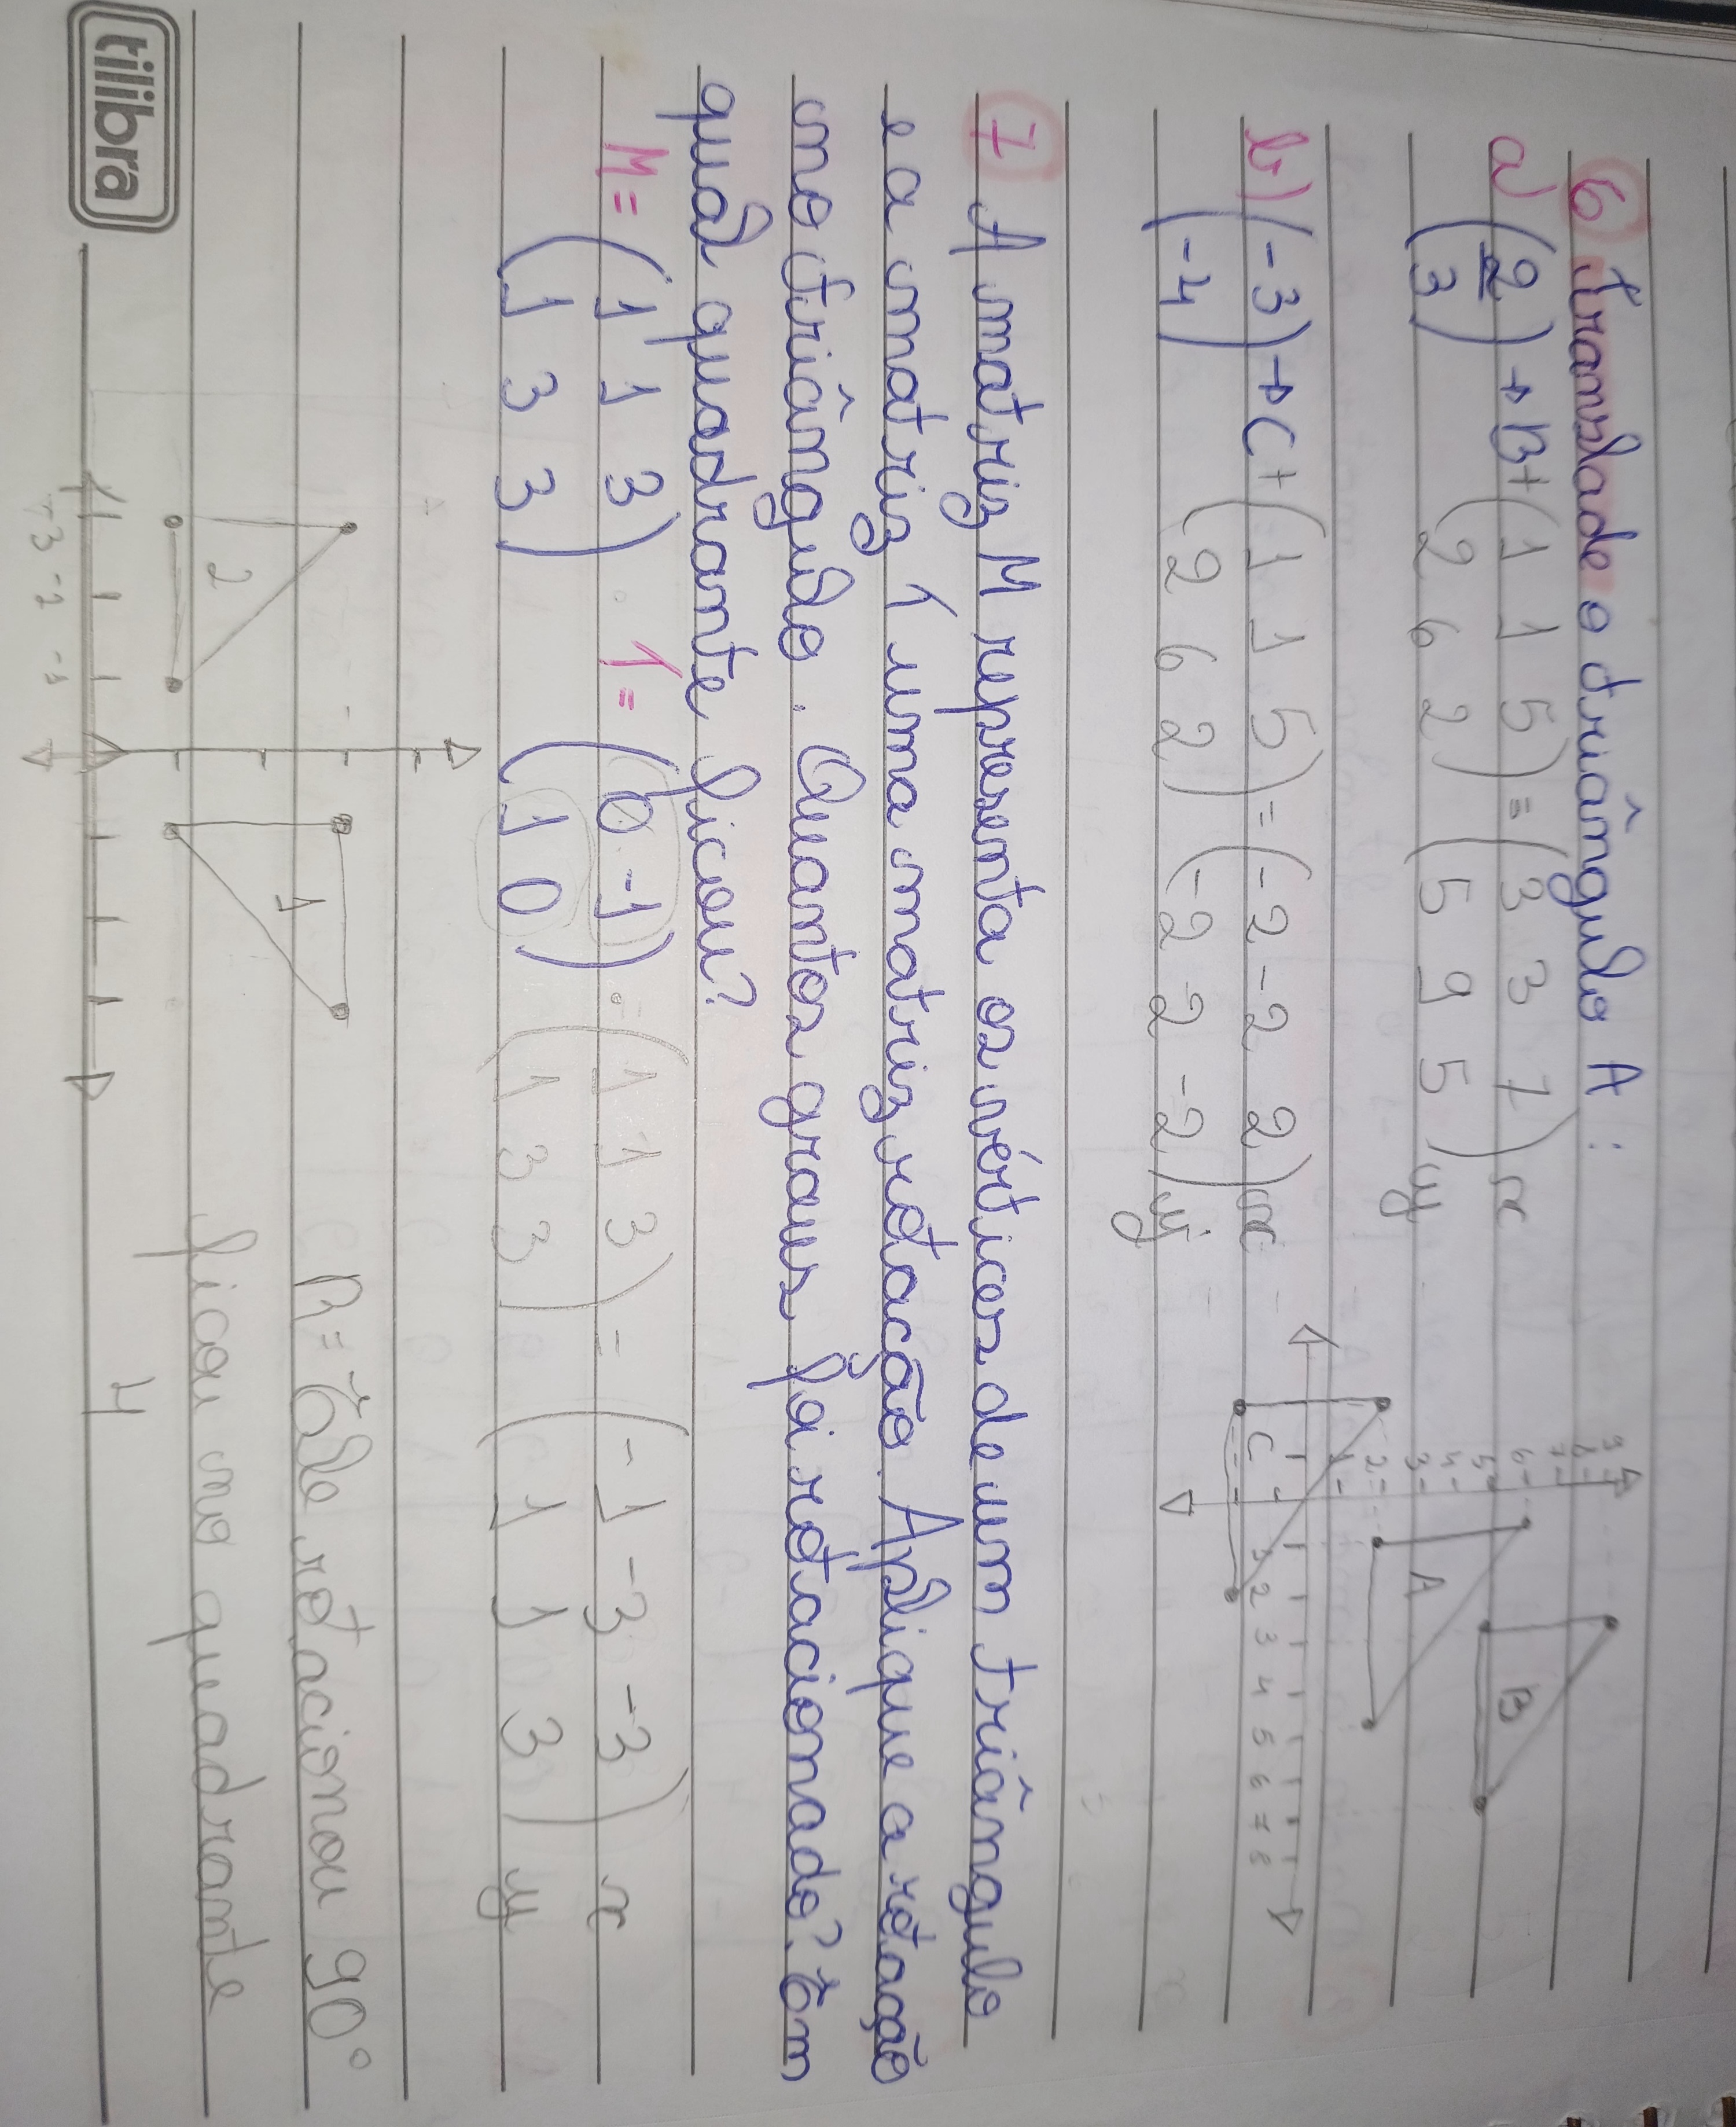 6 Translade o triângulo A :
a) (2 3) → B + (1 1 5 = (3 3 7) x
2 6 2) 5 9 5 y
b) (-3 -4) → C + (1 1 5 = (-2 -2 2) x
2 6 2) -2 2 -2 y
9
8
7
6
5
4
3
2
1
B
A
C
1 2 3 4 5 6 7 8
7 A matriz M representa os vértices de um triângulo
e a matriz T uma matriz rotação. Aplique a rotação
no triângulo. Quantos graus foi rotacionado? Em
qual quadrante ficou?
M = (1 1 3) . T = (0 -1) . (1 1 3) = (-1 -3 -3) x
(1 3 3) (1 0) (1 3 3) (1 1 3) y
1
2
-3 -2 -1
R = Ele rotacionou 90°
ficou no quadrante
4
tilibra